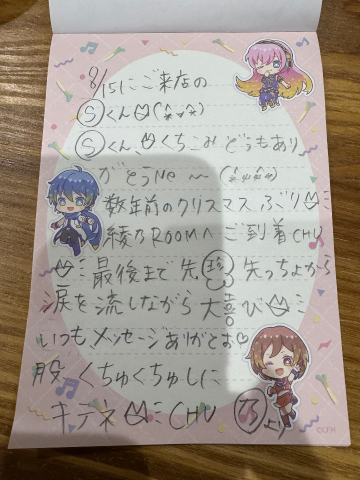 8/15にご来店の
Ⓢくん(^◡^)
Ⓢくん くちこみどうもあり
がとうNe〜
数年前のクリスマスぶり
綾乃ROOMへご到着CHU
最後まで先珍 先っちょから
涙を流しながら大喜び
いつもメッセージありがとお♡
股くちゅくちゅしに
キテネ CHU 乃より
©CFM